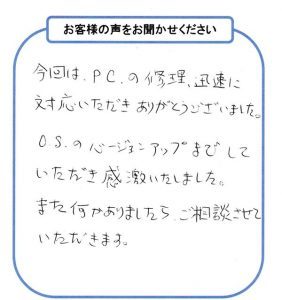 お客様の声をお聞かせください
今回は、PC.の修理、迅速に
対応いただき ありがとうございました。
O.S.のバージョンアップまでして
いただき感激いたしました。
また何かありましたら、ご相談させて
いただきます。